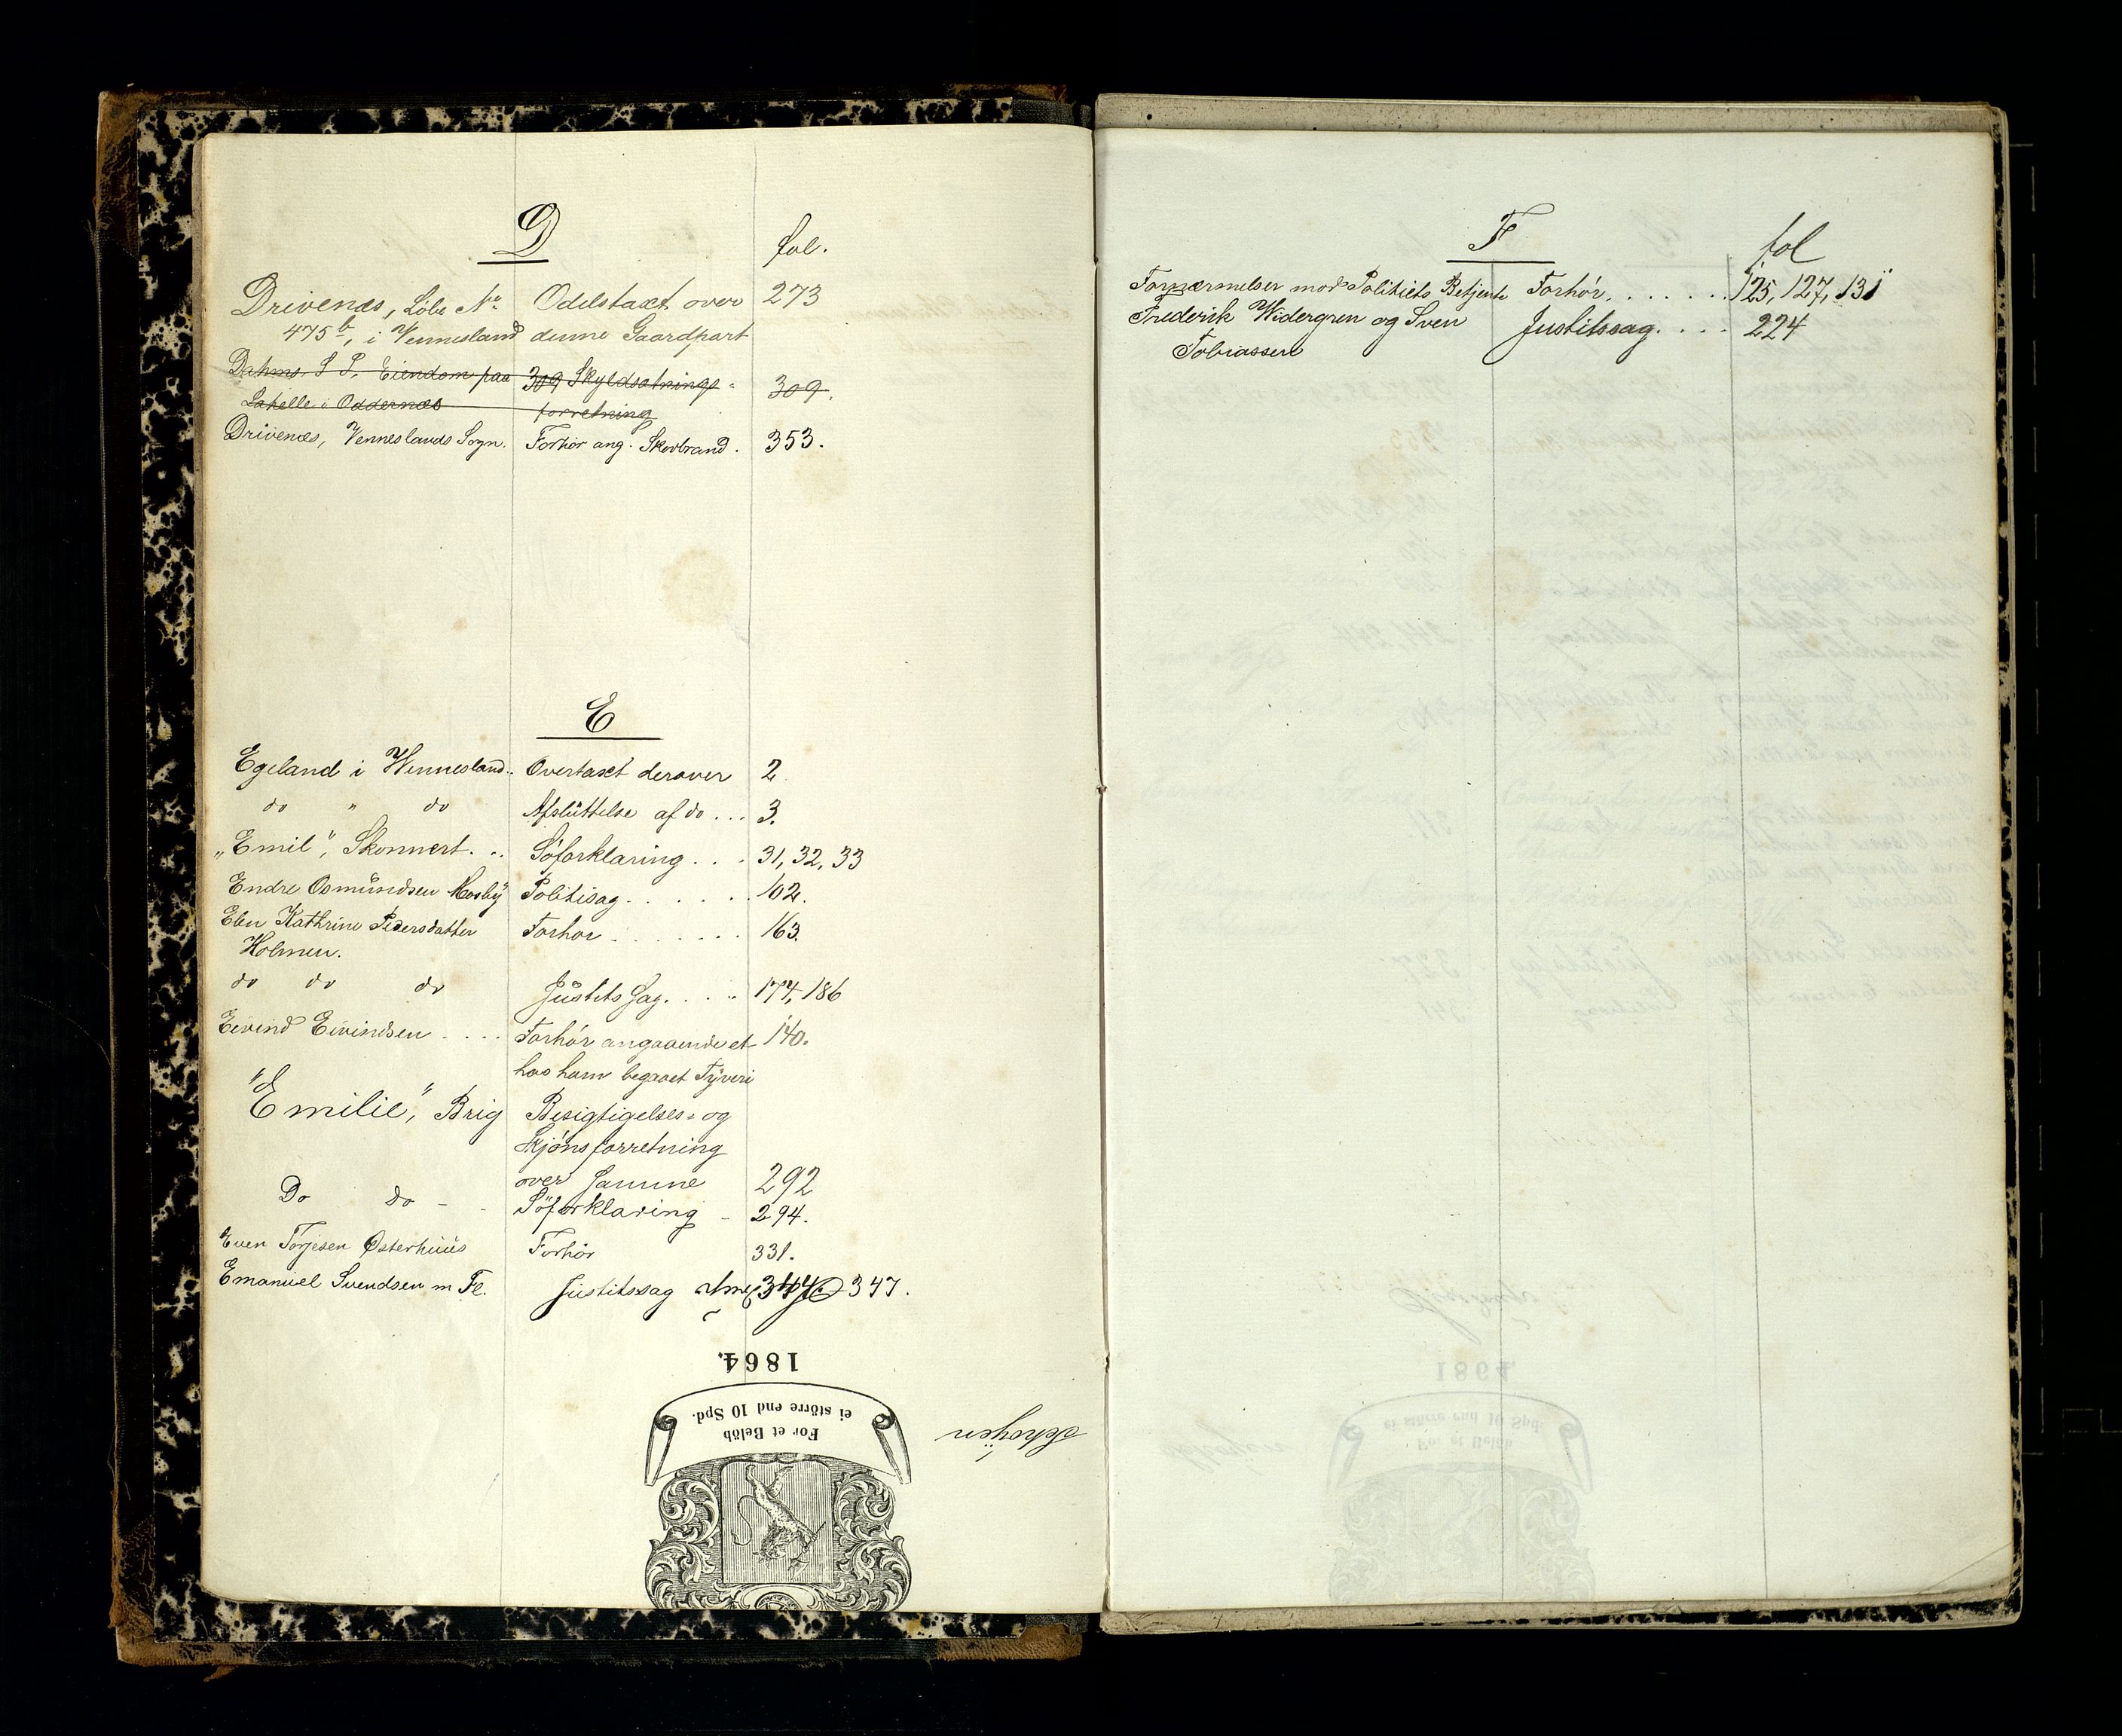 D
fol.
Drivenes, Löbe No Odelstaxt over 273
475b, i Vennesland denne Gaardpart
Dahms. S P. Eiendom paa 309 Skyldsætnings- 309.
Lahelle i Oddernæs forretning
Drivenes, Venneslands Sogn. Forhör ang. Skovbrand. 353.
E
Egeland i Wennesland.. Overtaxt derover 2
do " do Afsluttelse af do... 3.
"Emil", Skonnert... Söforklaring... 31, 32, 33
Endre Osmundsen Mosby Politisag....... 102.
Elen Kathrine Pedersdatter Forhor....... 163.
Holmen.
do do do Justits Sag..... 174, 186
Eivind Eivindsen.... Forhör angaaende et 140.
hos ham begaaet Tyveri
"Emilie", Brig Besigtigelses- og
Skjönsforretning
over Samme 292
Do do - - Söforklaring - 294.
Even Torjesen Østerhuus Forhör 331.
Emanuel Svendsen m Fl. Justitssag 344. 347.
1864.
For et Belöb
ei större end 10 Spd.
F
fol
Fornærmelser mod Politiets Betjente Forhör....... 125, 127, 131
Frederik Widergren og Sven Justitssag.... 224
Tobiassen